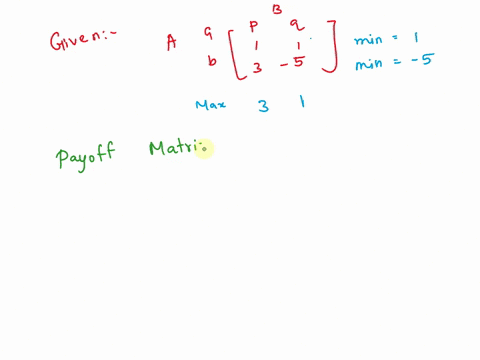 B
Given:- P q
A a 1 1 min = 1
b 3 -5 min = -5
Max 3 1
Payoff Matri